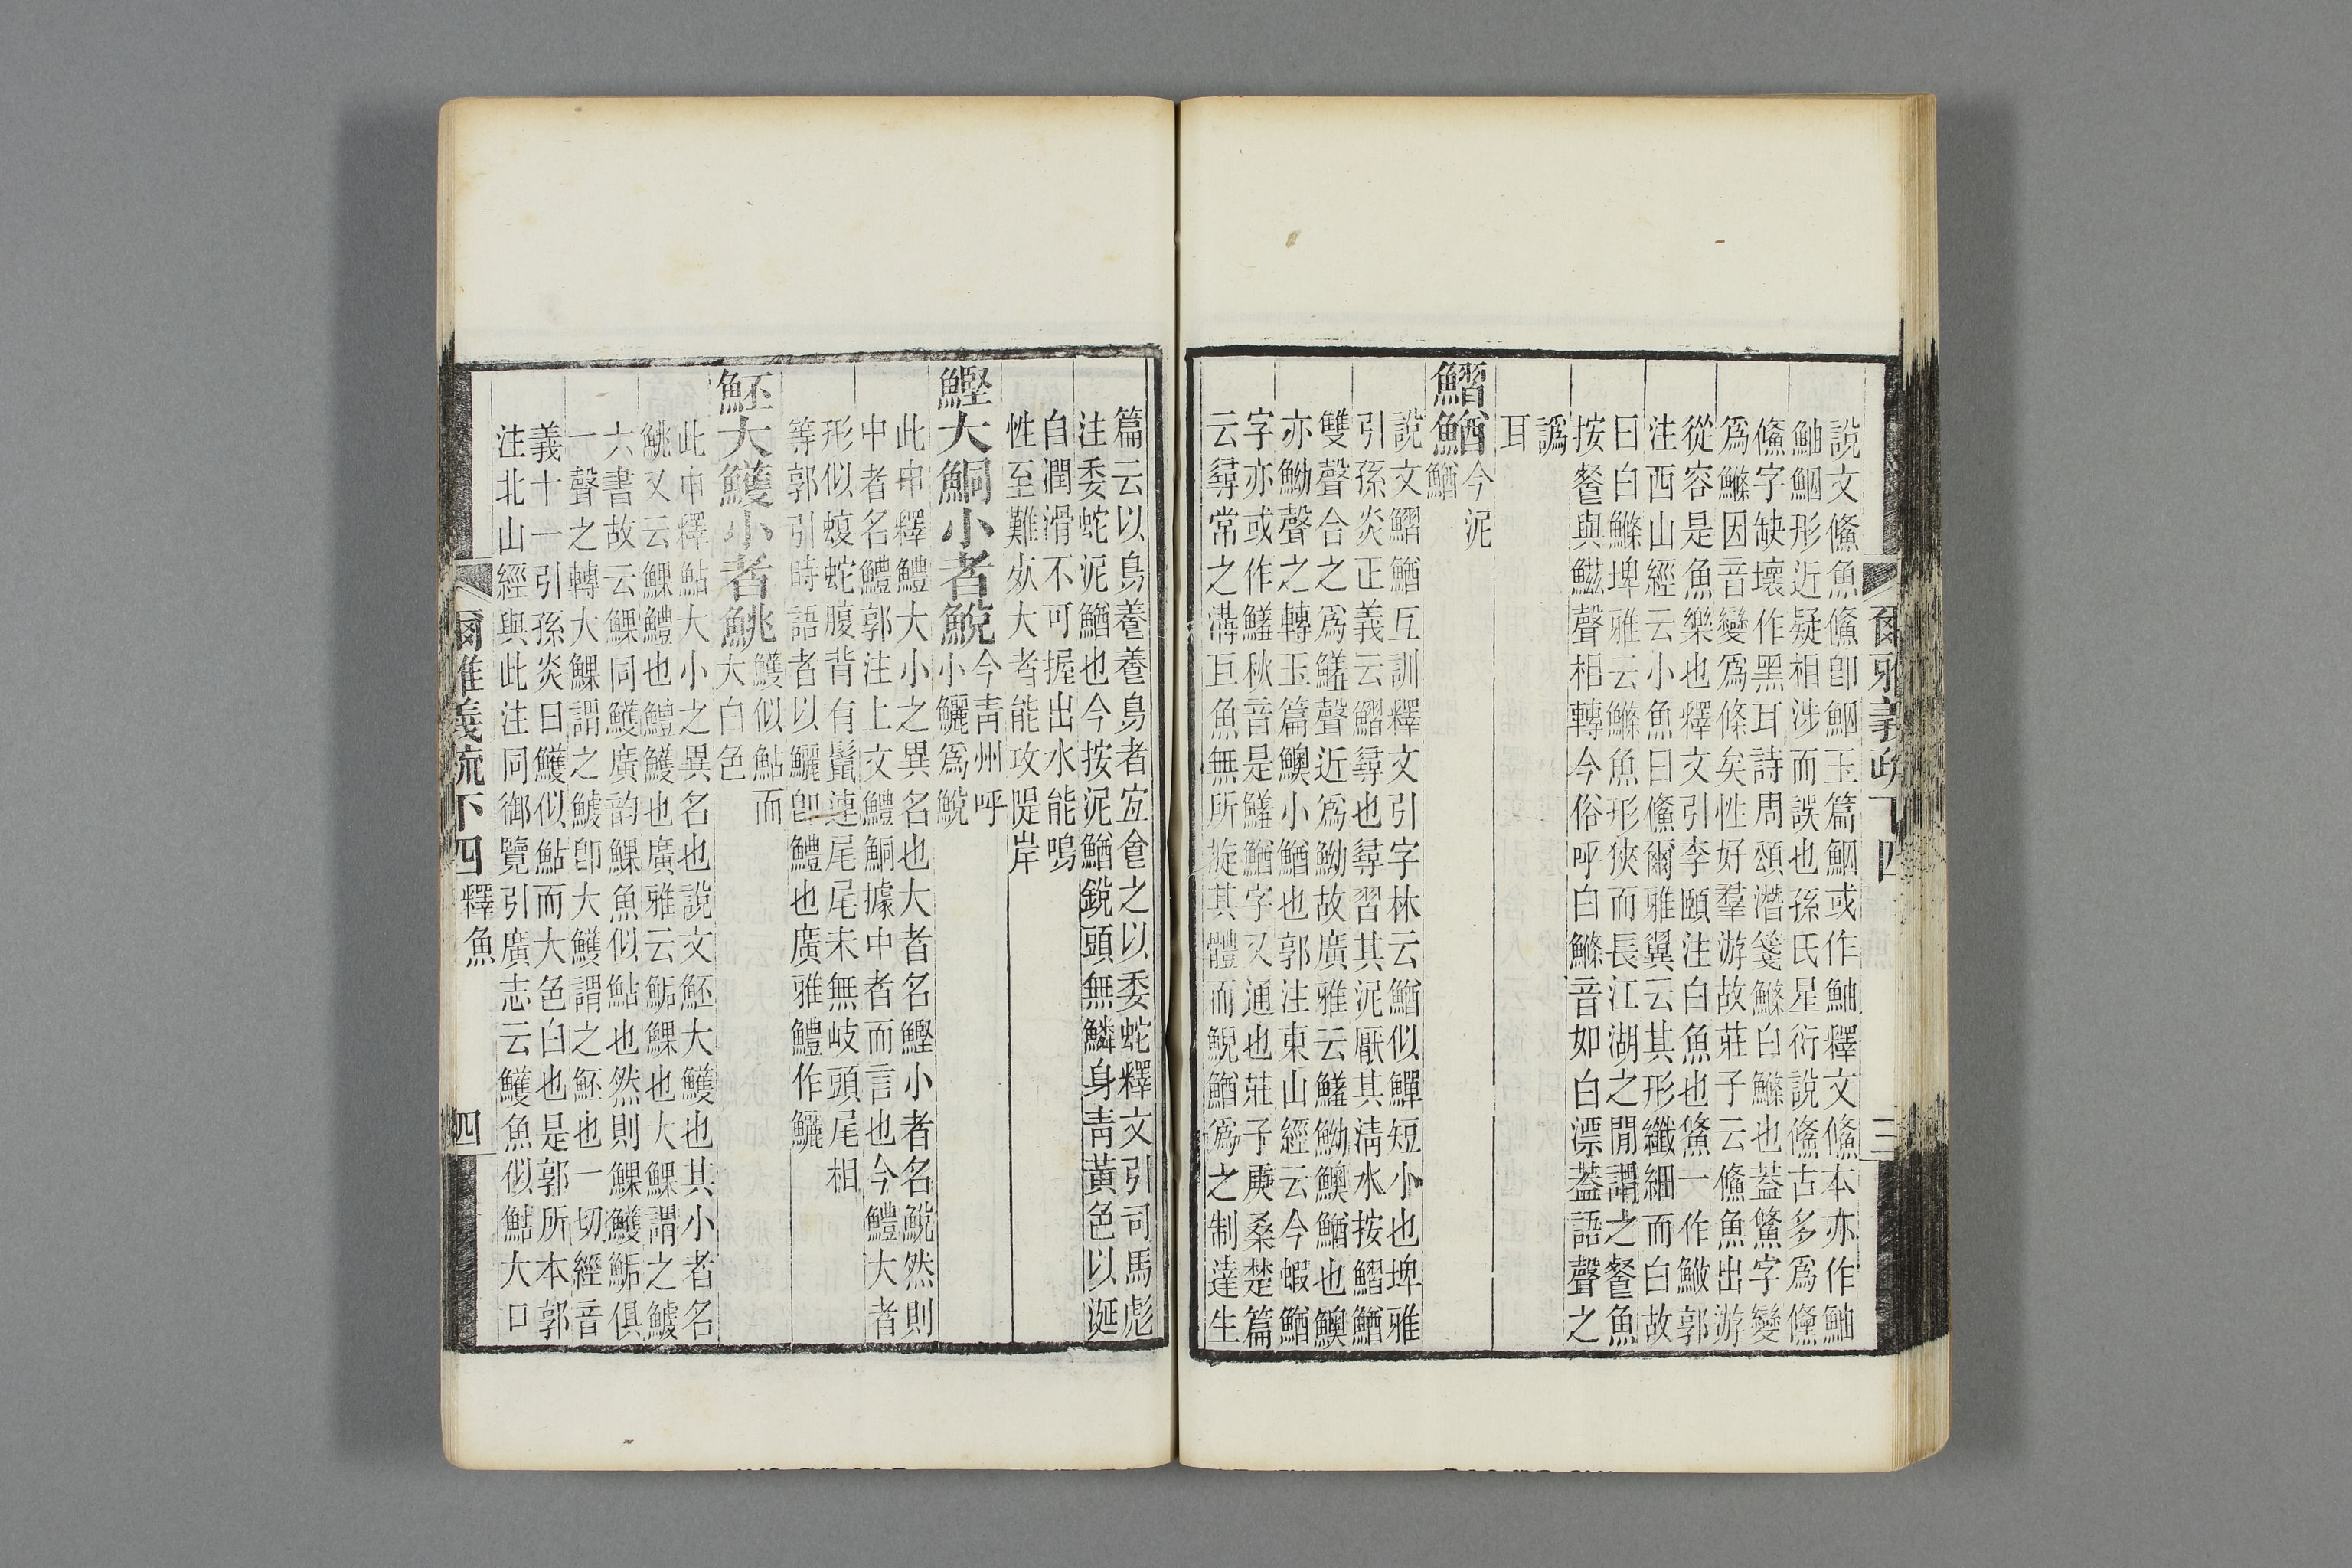 爾雅義疏下四
三
說文鯈魚鯈卽鮂玉篇鮂或作鮋釋文鯈本亦作鮋
鮋鮂形近疑相涉而誤也孫氏星衍說鯈古多爲儵
鯈字缺壞作黑耳詩周頌潛箋鰷白鰷也蓋鯈字變
爲鰷因音變爲條矣性好羣游故莊子云鯈魚出游
從容是魚樂也釋文引李頤注白魚也鯈一作鮍郭
注西山經云小魚曰鯈爾雅翼云其形纖細而白故
曰白鰷埤雅云鰷魚形狹而長江湖之閒謂之䱗魚
按䱗與鰦聲相轉今俗呼白鰷音如白漂蓋語聲之
譌
耳
鰼鰌
今泥
鰌
說文鰼鰌互訓釋文引字林云鰌似鱓短小也埤雅
引孫炎正義云鰼尋也尋習其泥厭其淸水按鰼鰌
雙聲合之爲鱃聲近爲䱂故廣雅云鱃䱂鱮鰌也鱮
亦䱂聲之轉玉篇鱮小鰌也郭注東山經云今蝦鰌
字亦或作鱃秋音是鱃鰌字又通也莊子庚桑楚篇
云尋常之溝巨魚無所旋其體而鯢鰌爲之制達生
篇云以鳥養養鳥者宐食之以委蛇釋文引司馬彪
注委蛇泥鰌也今按泥鰌銳頭無鱗身靑黃色以涎
自潤滑不可握出水能鳴
性至難㱙大者能攻隄岸
鰹大鮦小者鮵
今靑州呼
小鱺爲鮵
此申釋鱧大小之異名也大者名鰹小者名鮵然則
中者名鱧郭注上文鱧鮦據中者而言也今鱧大者
形似蝮蛇腹背有鬛連尾尾末無岐頭尾相
等郭引時語者以鱺卽鱧也廣雅鱧作鱺
魾大鱯小者鮡
鱯似鮎而
大白色
此申釋鮎大小之異名也說文魾大鱯也其小者名
鮡又云鰥鱧也鱧鱯也廣雅云鮜鰥也大鰥謂之鱯
六書故云鰥同鱯廣韵鰥魚似鮎也然則鰥鱯鮜俱
一聲之轉大鰥謂之鱯卽大鱯謂之魾也一切經音
義十一引孫炎曰鱯似鮎而大色白也是郭所本郭
注北山經與此注同御覽引廣志云鱯魚似鮎大口
爾雅義疏下四 釋魚
四